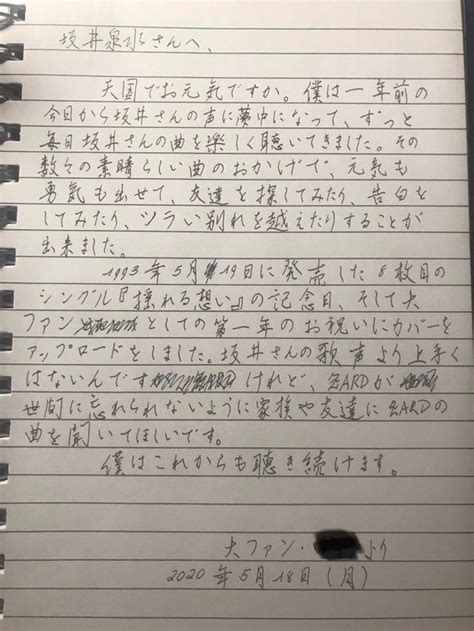 坂井泉水さんへ、
天国でお元気ですか。僕は一年前の
今日から坂井さんの声に夢中になって、ずっと
毎日坂井さんの曲を楽しく聴いてきました。その
数々の素晴らしい曲のおかげで、元気も
勇気も出せて、友達を探してみたり、告白を
してみたり、ツラい別れを越えたりすることが
出来ました。
1993年5月19日に発売した8枚目の
シングル『揺れる想い』の記念日、そして大
ファンとしての第一年のお祝いにカバーを
アップロードをしました。坂井さんの歌声より上手く
はないんですけれど、ZARDが
世間に忘れられないように家族や友達にZARDの
曲を聞いてほしいです。
僕はこれからも聴き続けます。
大ファン・より
2020年5月18日(月)